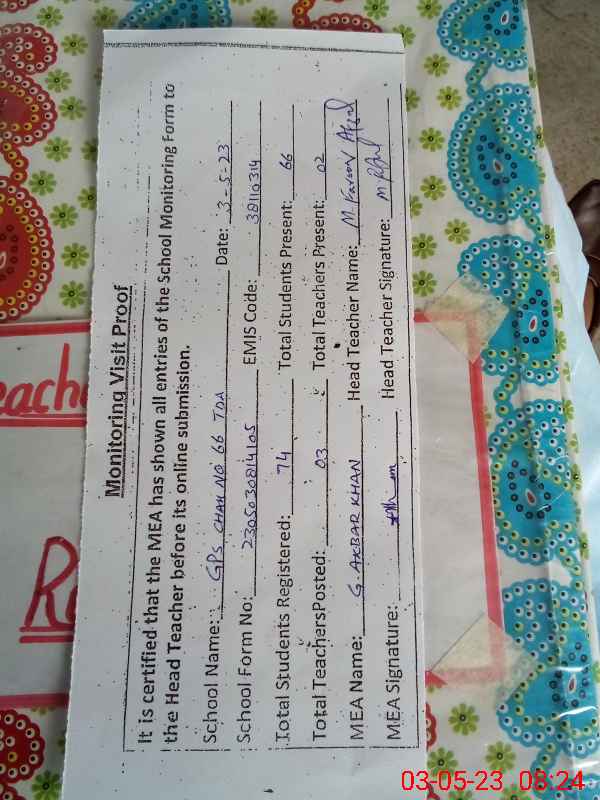 Monitoring Visit Proof
It is certified that the MEA has shown all entries of the School Monitoring Form to
the Head Teacher before its online submission.
School Name: GPS CHAH NO 66 TDA Date: 3-5-23
School Form No: 2305030814105 EMIS Code: 38110314
Total Students Registered: 74 Total Students Present: 66
Total TeachersPosted: 03 Total Teachers Present: 02
MEA Name: G. AKBAR KHAN Head Teacher Name: M.
MEA Signature: Head Teacher Signature:
each
R
03-05-23 08:24